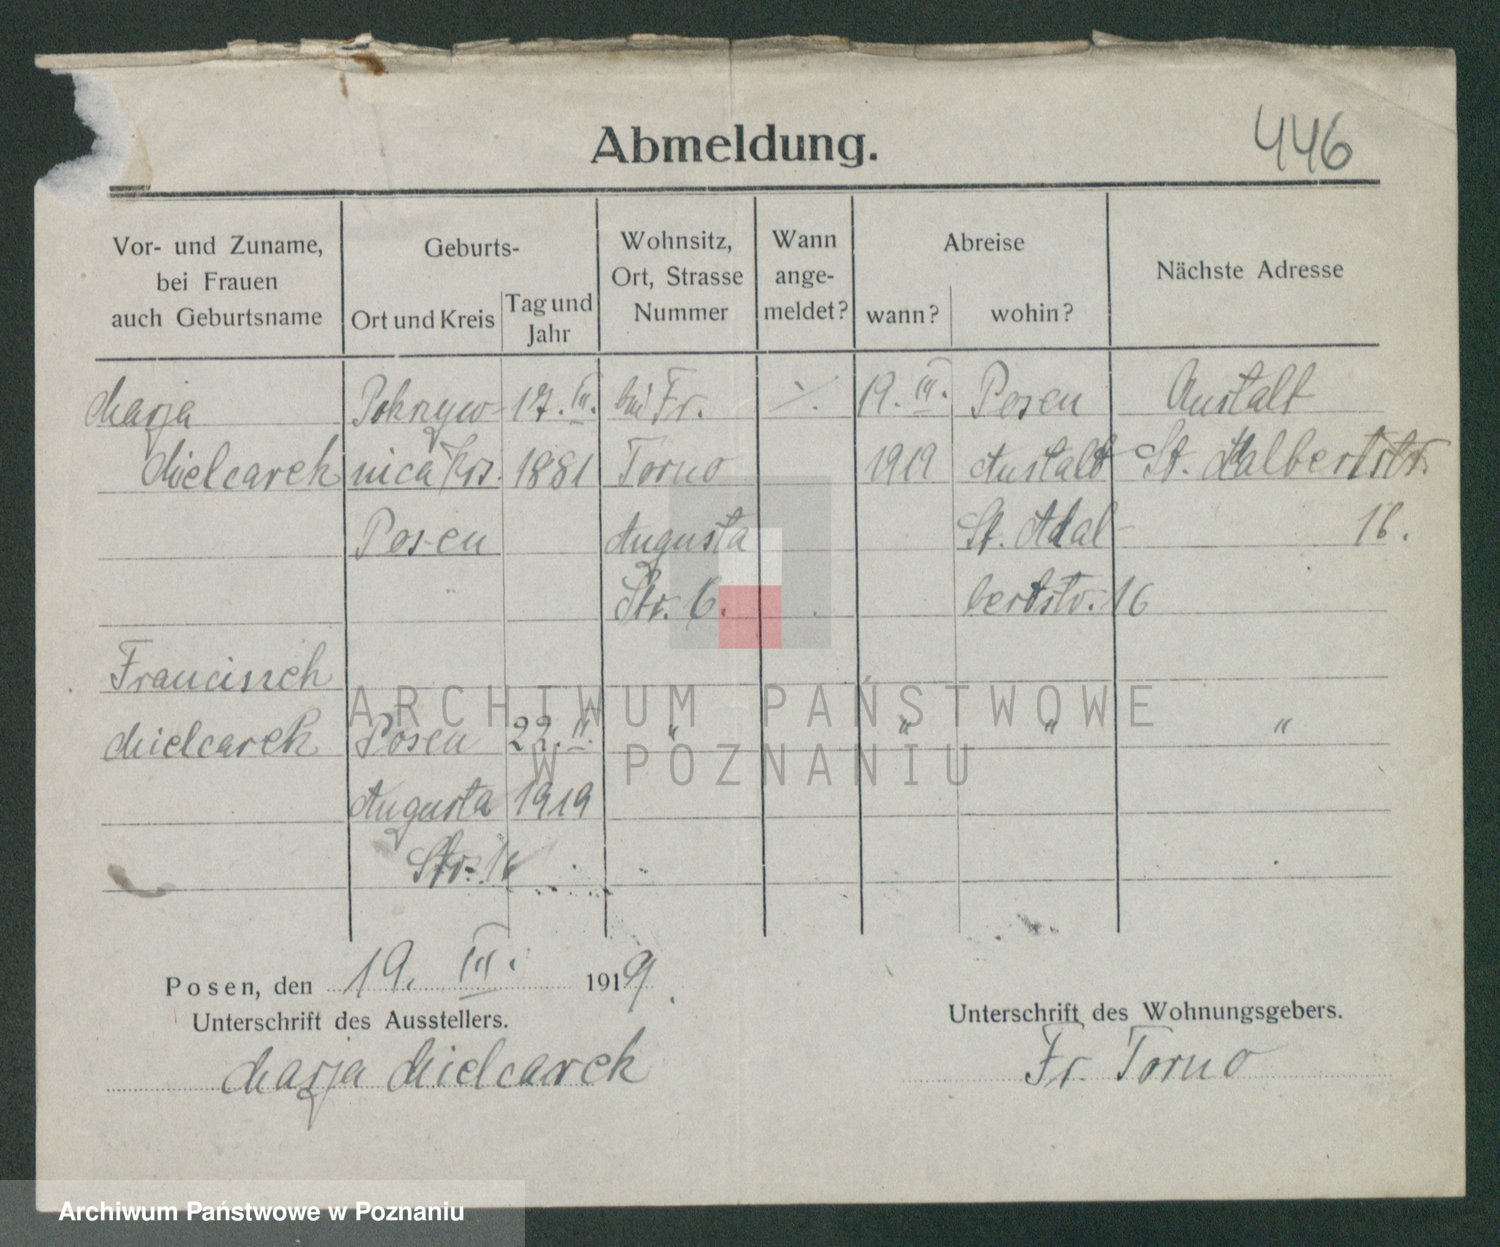 Abmeldung.
446
Vor- und Zuname,
bei Frauen
auch Geburtsname
Geburts-
Ort und Kreis
Tag und
Jahr
Wohnsitz,
Ort, Strasse
Nummer
Wann
ange-
meldet?
Abreise
wann?
wohin?
Nächste Adresse
Marja Pokrzyw- 17. III. bei Fr. 19. III. Posen Anstalt
Mielcarek nica Krs. 1881 Torno 1919 Anstalt St. Adalbertstr.
Posen Augusta St. Adal- 16.
Str. 6. bertstr. 16
Franciszek
Mielcarek Posen 22. II. " " " "
Augusta 1919
Str. 16
Posen, den 19. III. 1919.
Unterschrift des Ausstellers.
Marja Mielcarek
Unterschrift des Wohnungsgebers.
Fr. Torno
ARCHIWUM PAŃSTWOWE
W POZNANIU
Archiwum Państwowe w Poznaniu